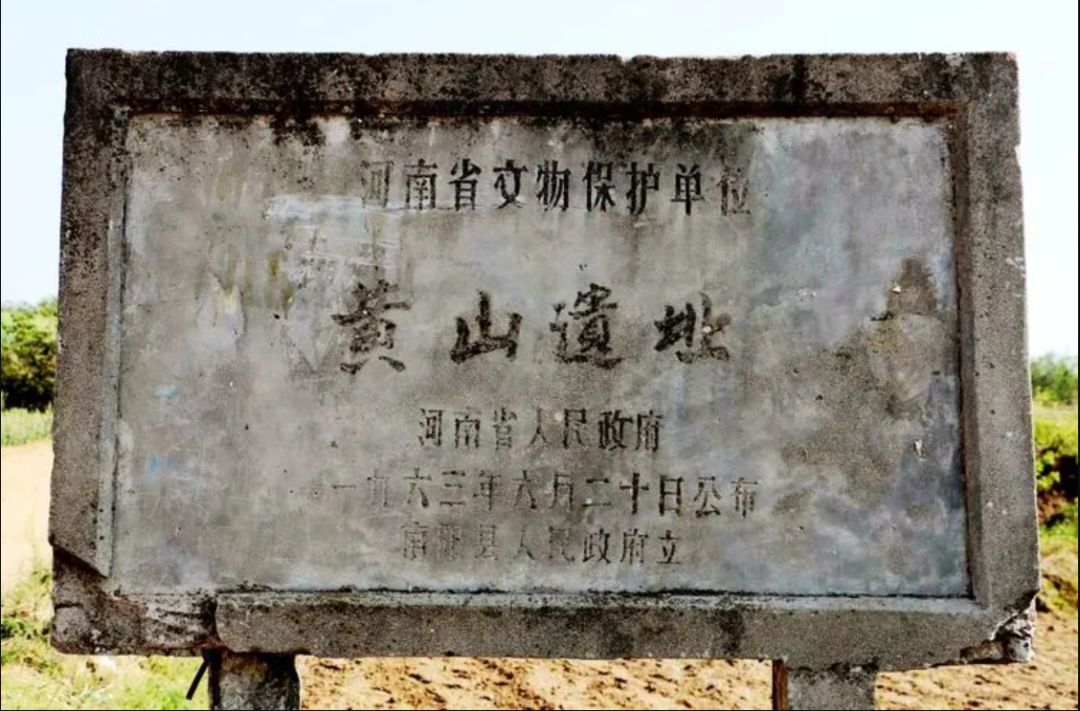 河南省文物保护单位
黄山遗址
河南省人民政府
一九六三年六月二十日公布
南阳县人民政府立